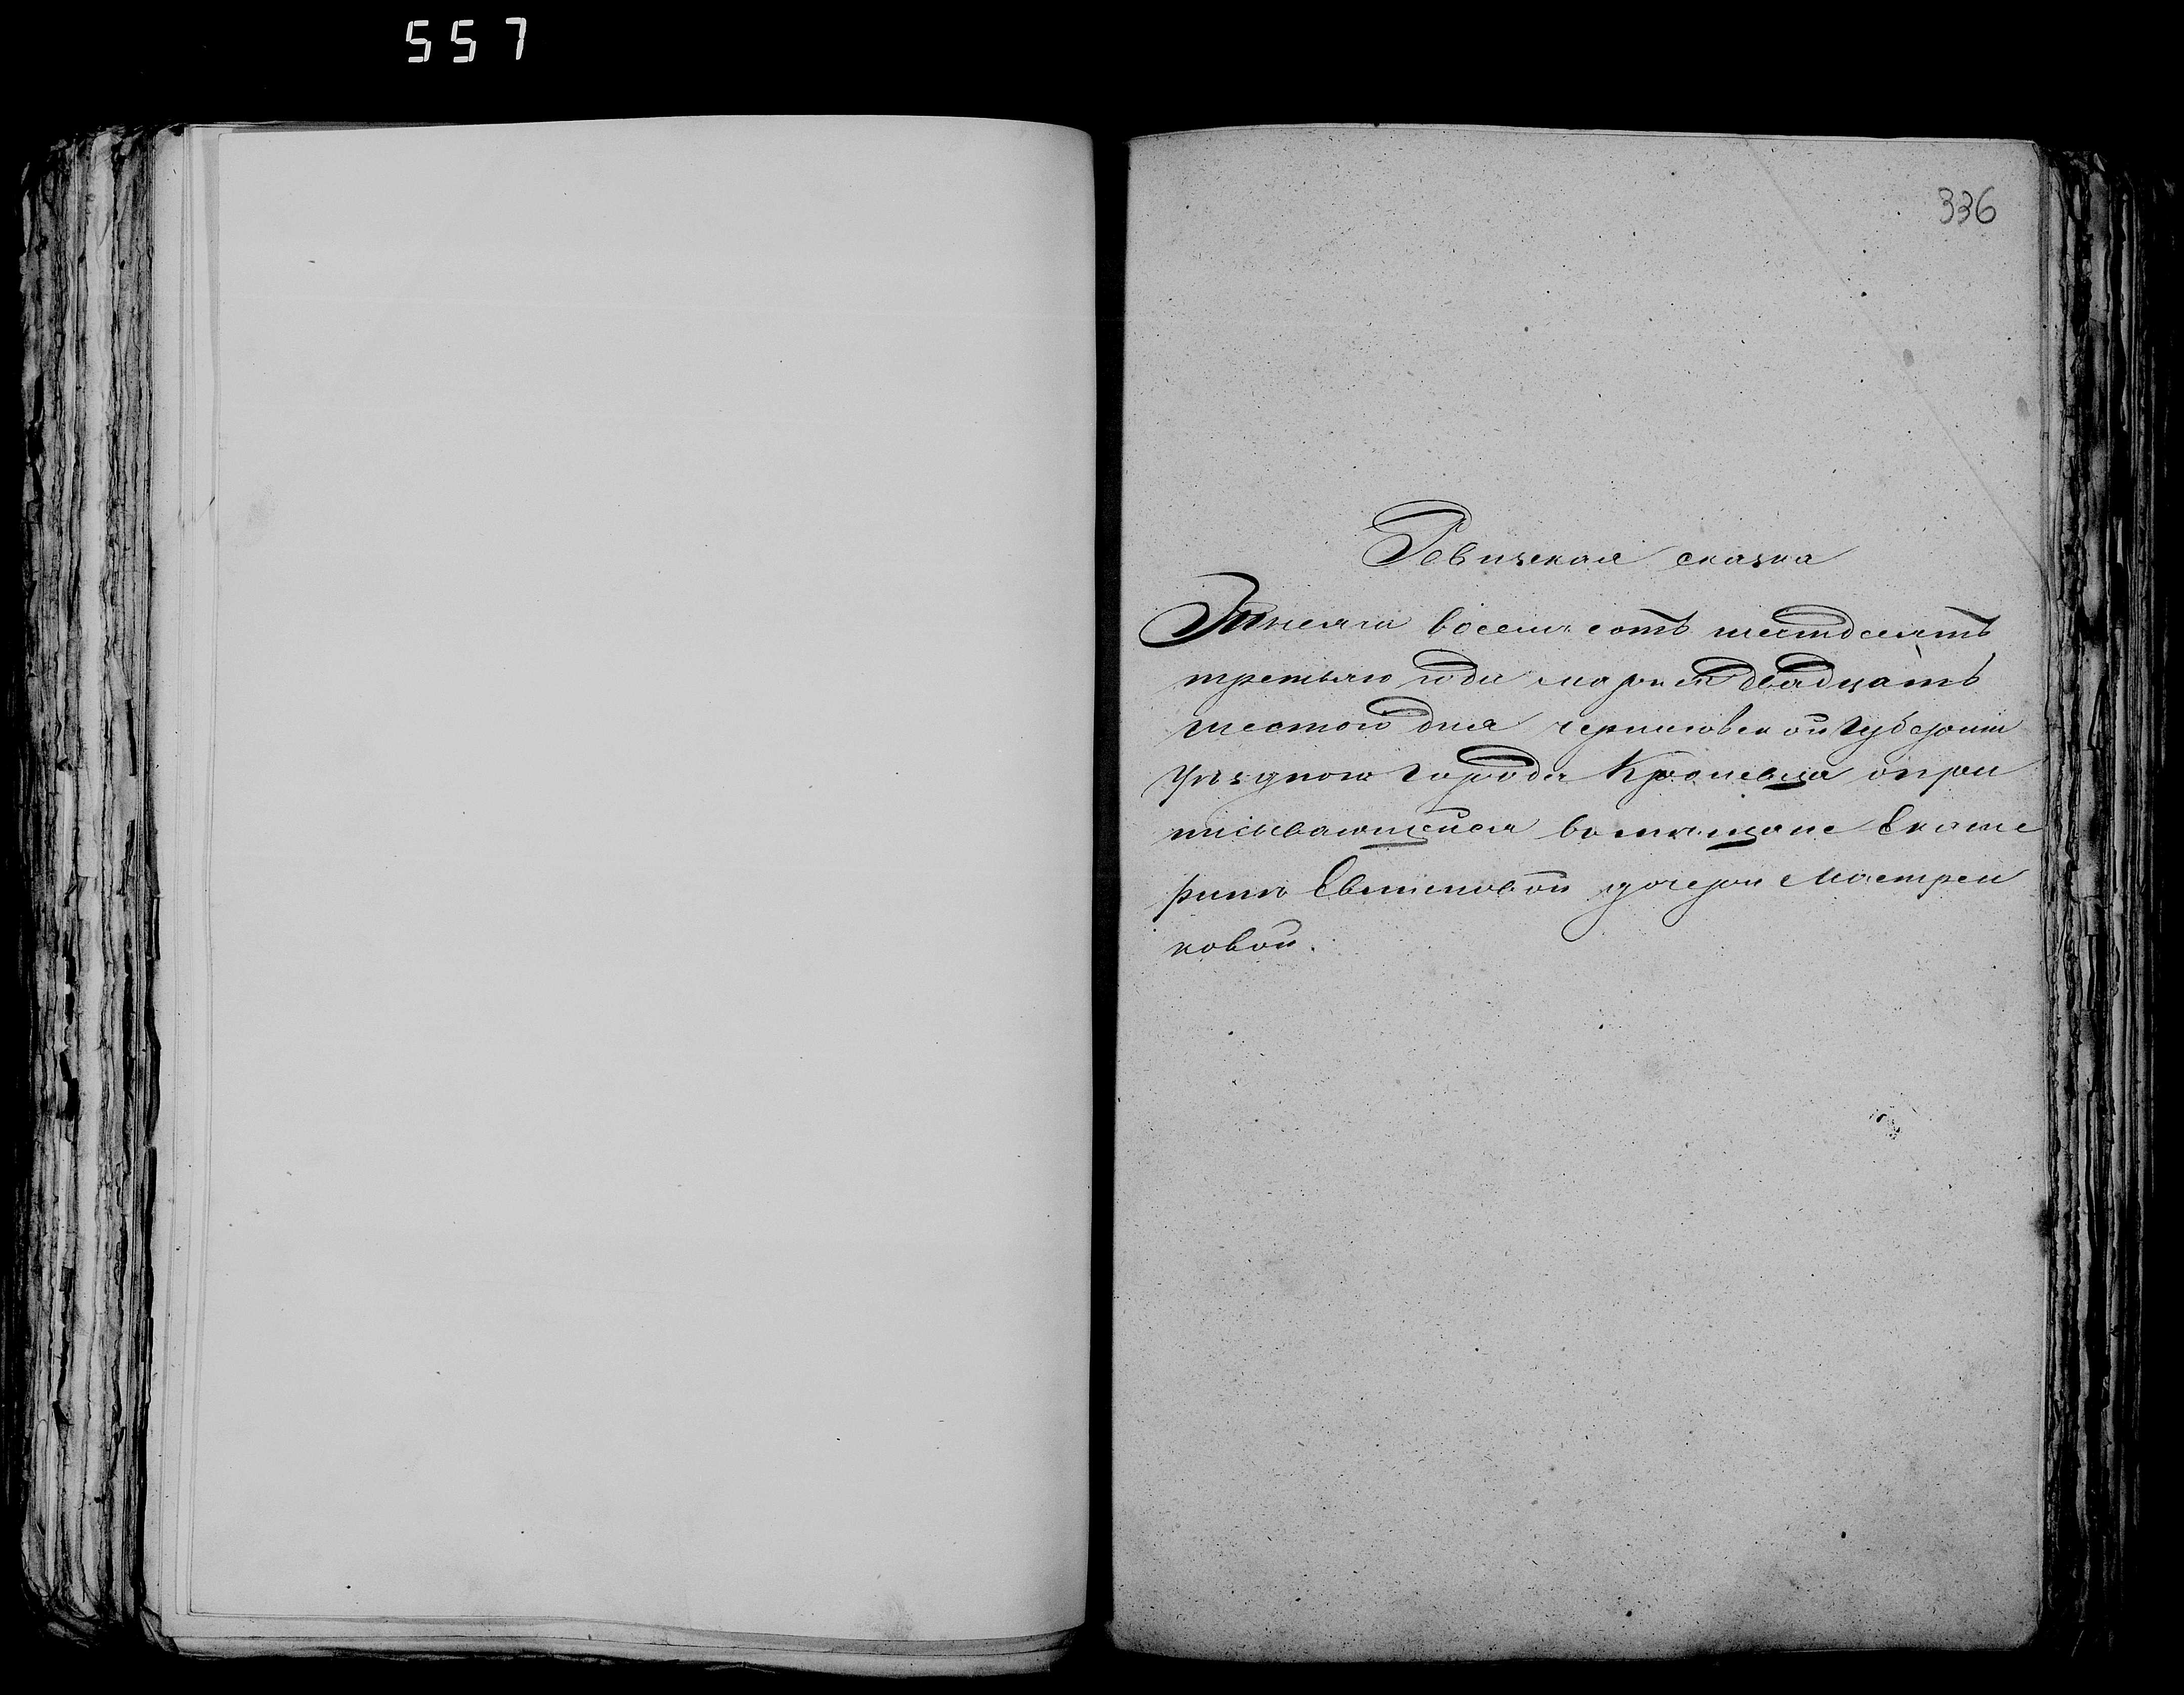 557
336
Ревизская сказка
Тысяча восемь сотъ шестдесятъ
третьяго года марта двадцать
шестого дня черниговской губернии
уѣзднаго города Кролевца о при
писывающейся въ мещане Екате
ринѣ Евтиховой дочери
ковой.